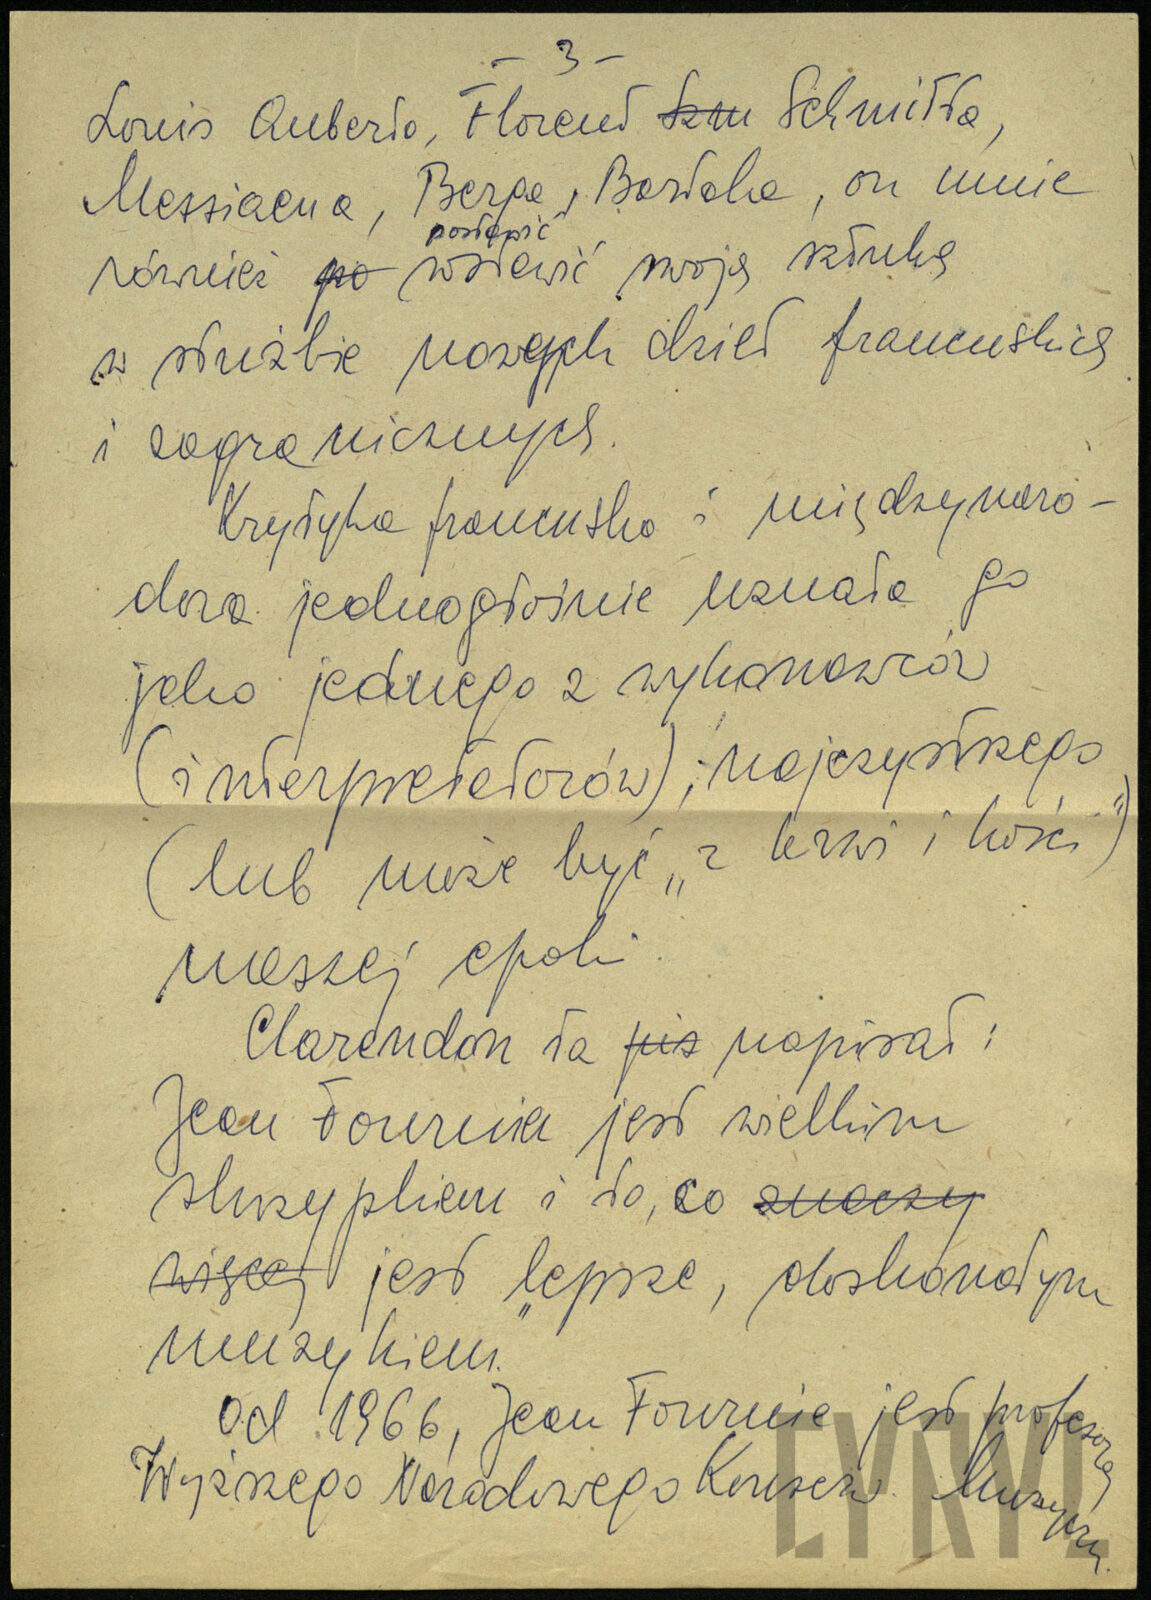 - 3 -
Louis Auberta, Florent Szm Schmitta,
Messiaena, Berga, Bartoka, on umie
postąpić
również po wstawić swoją sztukę
w służbie nowych dzieł francuskich
i zagranicznych.
Krytyka francuska i międzynaro-
dowa jednogłośnie uznała go
jako jednego z wykonawców
(interpretatorów), najczystszego
(lub może być „z krwi i kości")
naszej epoki.
Clarendon ta pis napisał:
Jean Fournier jest wielkim
skrzypkiem i to, co znaczy
więcej jest lepsze, doskonałym
muzykiem."
Od 1966, Jean Fournier jest profesorem
Wyższego Narodowego Konserw. Muzyczn.
LYRYL